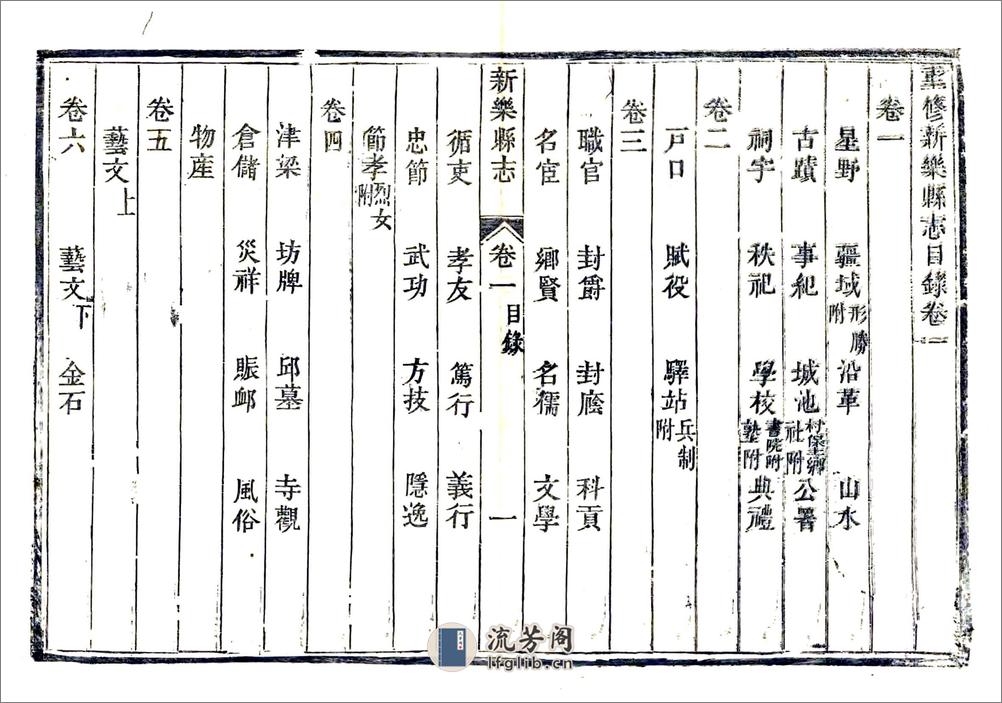 重修新樂縣志目錄卷一
卷一
星野 疆域形勝附 沿革 山水
古蹟 事紀 城池村保鄉社附 公署
祠宇 秩祀 學校書院附塾附 典禮
卷二
戶口 賦役 驛站兵制附
卷三
職官 封爵 封廕 科貢
名宦 鄉賢 名儒 文學
新樂縣志 卷一 目錄 一
循吏 孝友 篤行 義行
忠節 武功 方技 隱逸
節孝烈女附
卷四
津梁 坊牌 邱墓 寺觀
倉儲 災祥 賑卹 風俗
物產
卷五
藝文上
藝文下 金石
卷六
流芳阁
lfglib.cn